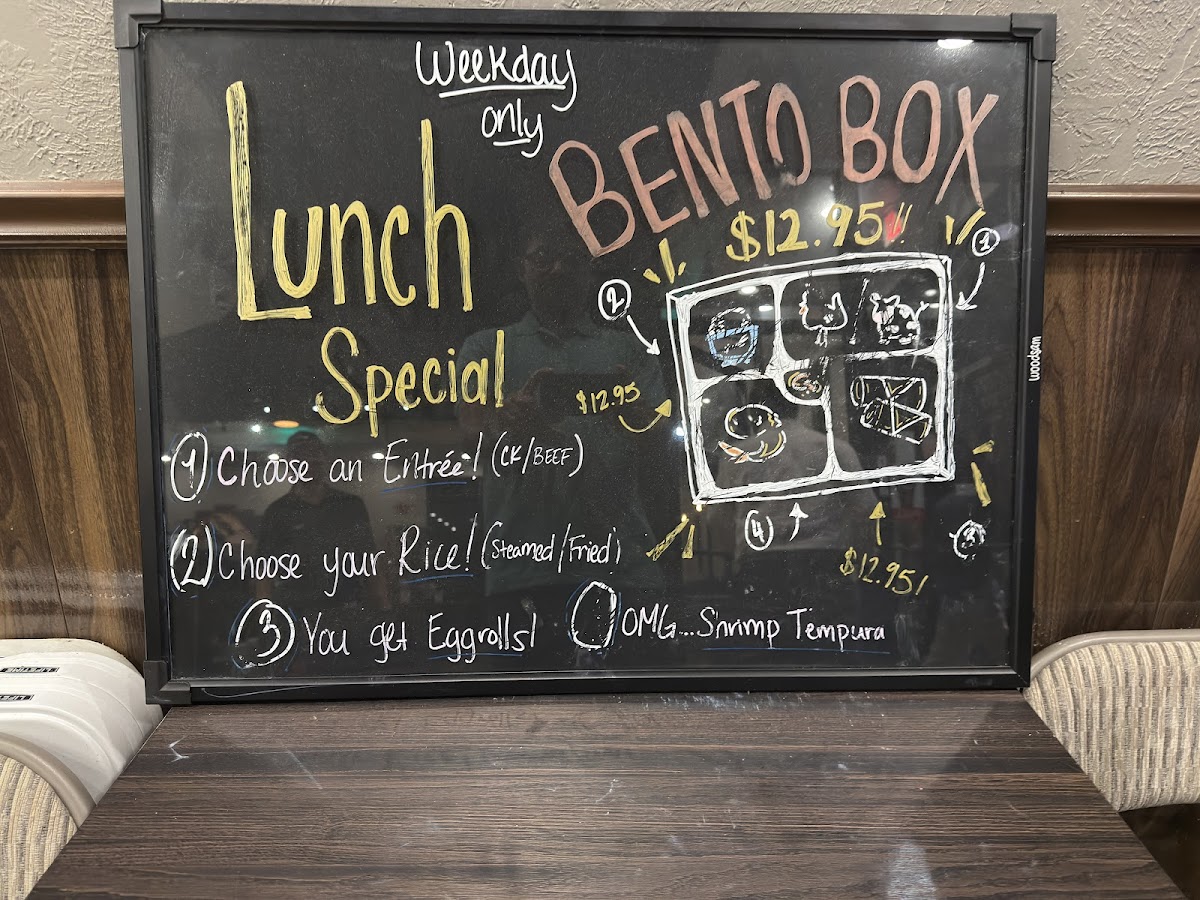 Weekday
only
Lunch
Special
BENTO BOX
$12.95
1
2
$12.95
4
3
$12.95!
1 Choose an Entrée! (CK/BEEF)
2 Choose your Rice! (Steamed/Fried)
3 You get Eggrolls!
OMG...Shrimp Tempura
woodsam
LIFETIME
LIFETIME